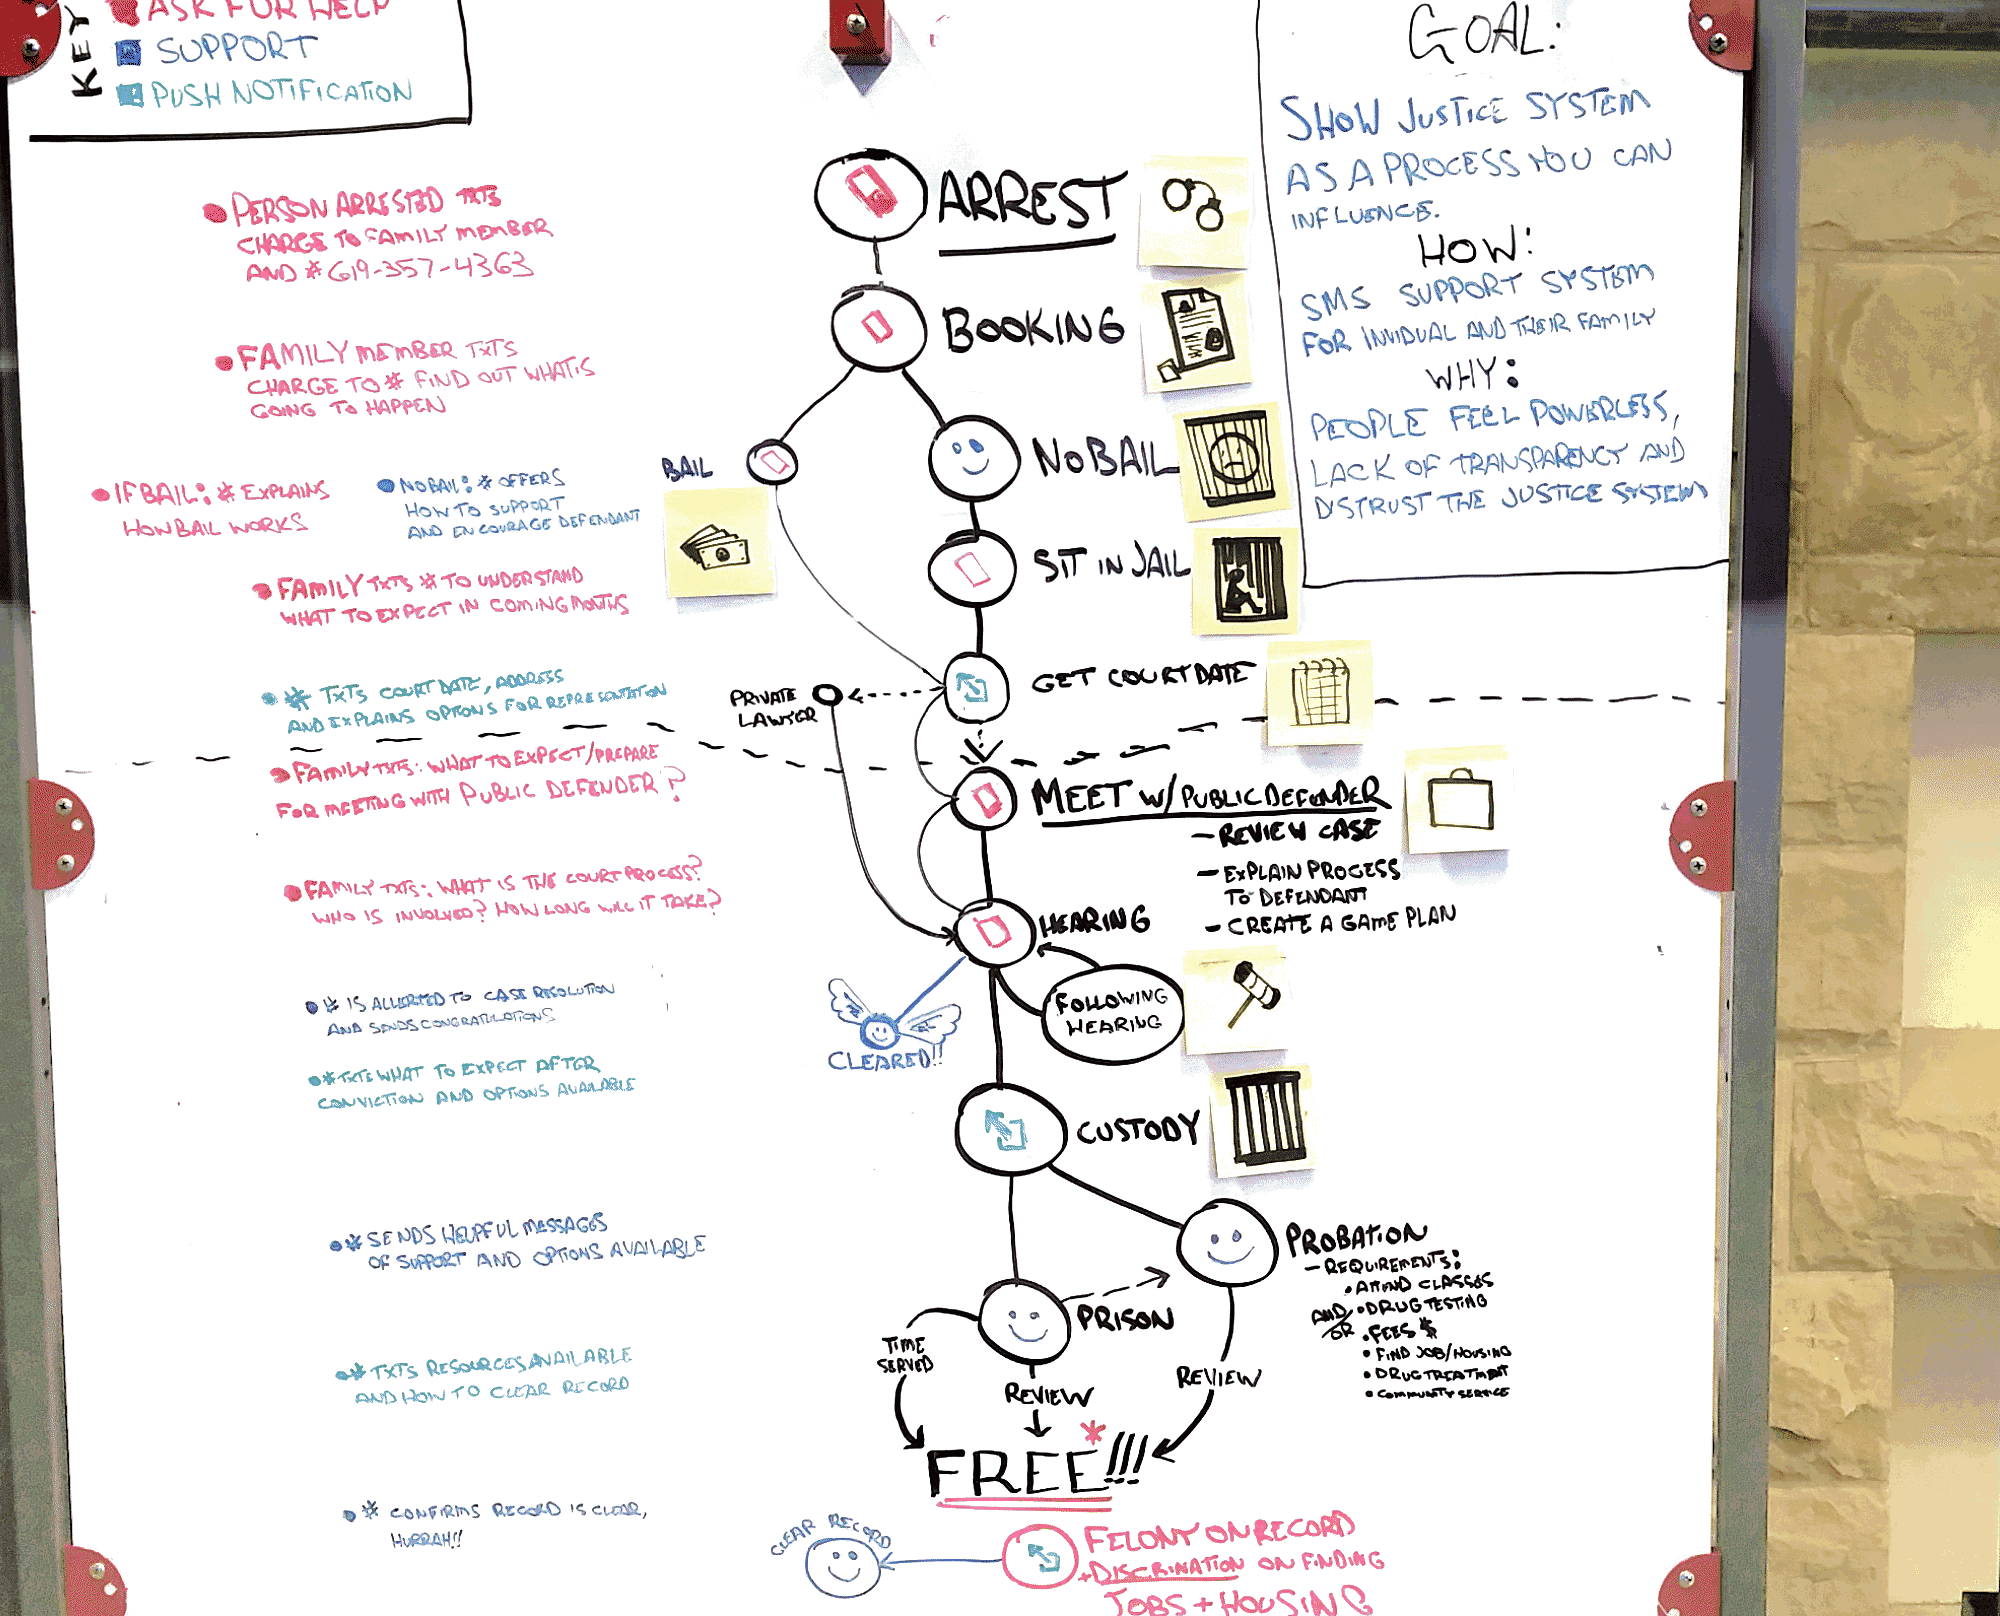 KEY
ASK FOR HELP
SUPPORT
PUSH NOTIFICATION
GOAL:
SHOW JUSTICE SYSTEM
AS A PROCESS YOU CAN
INFLUENCE.
HOW:
SMS SUPPORT SYSTEM
FOR INVIDUAL AND THEIR FAMILY
WHY:
PEOPLE FEEL POWERLESS,
LACK OF TRANSPARENCY AND
DISTRUST THE JUSTICE SYSTEM
PERSON ARRESTED TXTS
CHARGE TO FAMILY MEMBER
AND # 619-357-4363
FAMILY MEMBER TXTS
CHARGE TO # FIND OUT WHAT IS
GOING TO HAPPEN
IF BAIL: # EXPLAINS
HOW BAIL WORKS
NO BAIL: # OFFERS
HOW TO SUPPORT
AND ENCOURAGE DEFENDANT
FAMILY TXTS # TO UNDERSTAND
WHAT TO EXPECT IN COMING MONTHS
# TXTS COURT DATE, ADDRESS
AND EXPLAINS OPTIONS FOR REPRESENTATION
FAMILY TXTS: WHAT TO EXPECT/PREPARE
FOR MEETING WITH PUBLIC DEFENDER?
FAMILY TXTS: WHAT IS THE COURT PROCESS?
WHO IS INVOLVED? HOW LONG WILL IT TAKE?
# IS ALLERTED TO CASE RESOLUTION
AND SENDS CONGRATULATIONS
# TXTS WHAT TO EXPECT AFTER
CONVICTION AND OPTIONS AVAILABLE
# SENDS HELPFUL MESSAGES
OF SUPPORT AND OPTIONS AVAILABLE
# TXTS RESOURCES AVAILABLE
AND HOW TO CLEAR RECORD
# CONFIRMS RECORD IS CLEAR,
HURRAH!!
ARREST
BOOKING
BAIL
NO BAIL
SIT IN JAIL
GET COURT DATE
PRIVATE
LAWYER
MEET W/ PUBLIC DEFENDER
- REVIEW CASE
- EXPLAIN PROCESS
TO DEFENDANT
- CREATE A GAME PLAN
HEARING
FOLLOWING
HEARING
CLEARED!!
CUSTODY
PROBATION
- REQUIREMENTS:
• ATTEND CLASSES
AND/OR
• DRUG TESTING
• FEES $
• FIND JOB/HOUSING
• DRUG TREATMENT
• COMMUNITY SERVICE
PRISON
TIME
SERVED
REVIEW
REVIEW
FREE*!!!
CLEAR RECORD
FELONY ON RECORD
+ DISCRINATION ON FINDING
JOBS + HOUSING